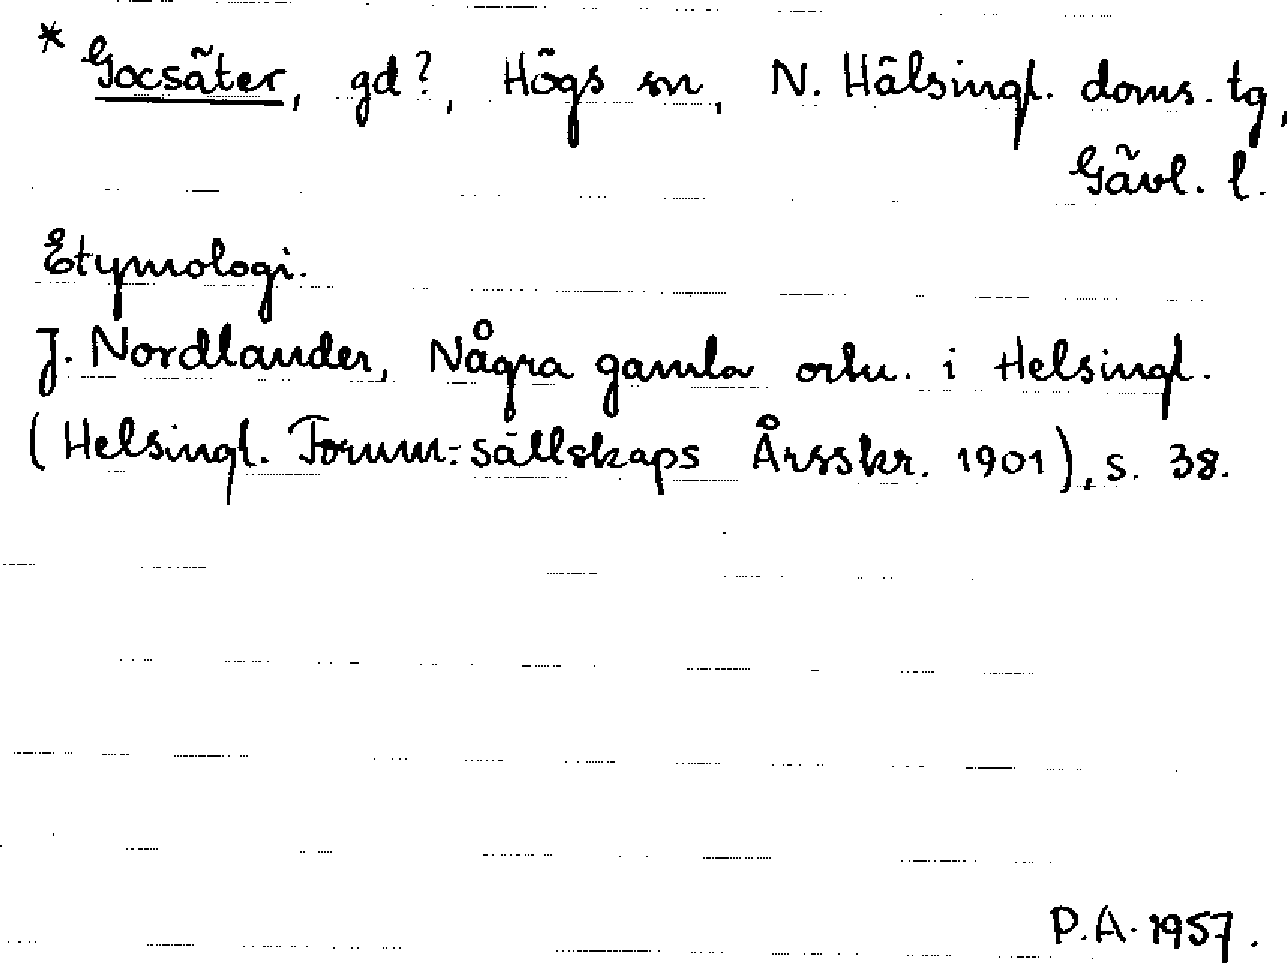 * Gocsäter, gd?, Högs sn, N. Hälsingl. doms. tg,
Gävl. l.
Etymologi.
J. Nordlander, Några gamla ortn. i Helsingl.
(Helsingl. Fornm.-sällskaps Årsskr. 1901), s. 38.
P.A. 1957.